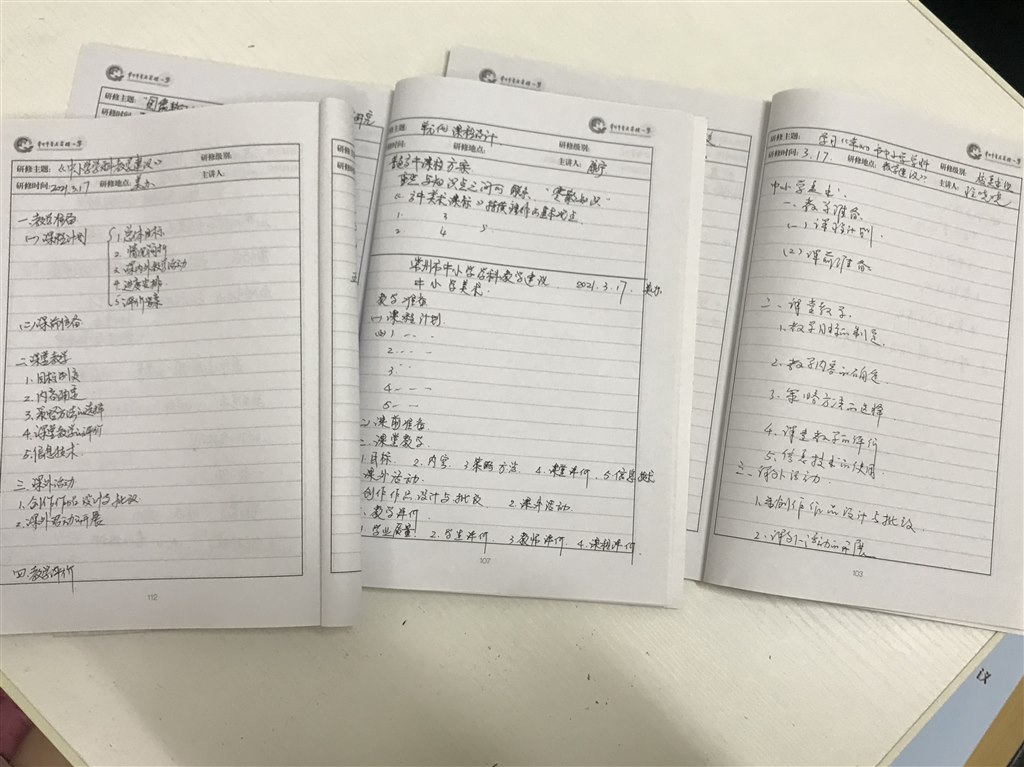 研修主题:《中小学学科教学建议》
研修级别:
研修时间:2021.3.17
研修地点:美办
主讲人:
一.教学准备
(一)课程计划
1.总体目标
2.情况简析
3.课内外教学活动
4.进度安排
5.评价方案
(二)课前准备
二.课堂教学
1.目标制定
2.内容确定
3.策略方法的选择
4.课堂教学的评价
5.信息技术.
三.课外活动
1.创作作品设计与批改
2.课外活动的开展
四.教学评价
112
研修主题:
研修时间:
主题: 单元间课程设计
研修级别:
修时间:
研修地点:
主讲人:
1. 3 5
2. 4
常州市中小学学科教学建议 2021.3.17. 美办
中小学美术.
教学准备
(一)课程计划.
1
2
3
4
5
(二)课前准备
二.课堂教学
1.目标. 2.内容. 3策略方法. 4.课堂评价. 5.信息技术
课外活动.
创作作品设计与批改 2.课外活动.
教学评价
1.学业质量. 2.学生评价. 3教师评价. 4.课程评价.
107
研修主题:
研修级别:
研修时间: 3.17.
研修地点:
教学建议》
主讲人:
中小学美术:
一.教学准备
(一)课程计划.
(二)课前准备.
二.课堂教学.
1.教学目标的制定.
2.教学内容的确定.
3.策略方法的选择
4.课堂教学的评价
5.信息技术的使用.
三.课外活动.
1.创作作品设计与批改
2.课外活动的开展
103
议